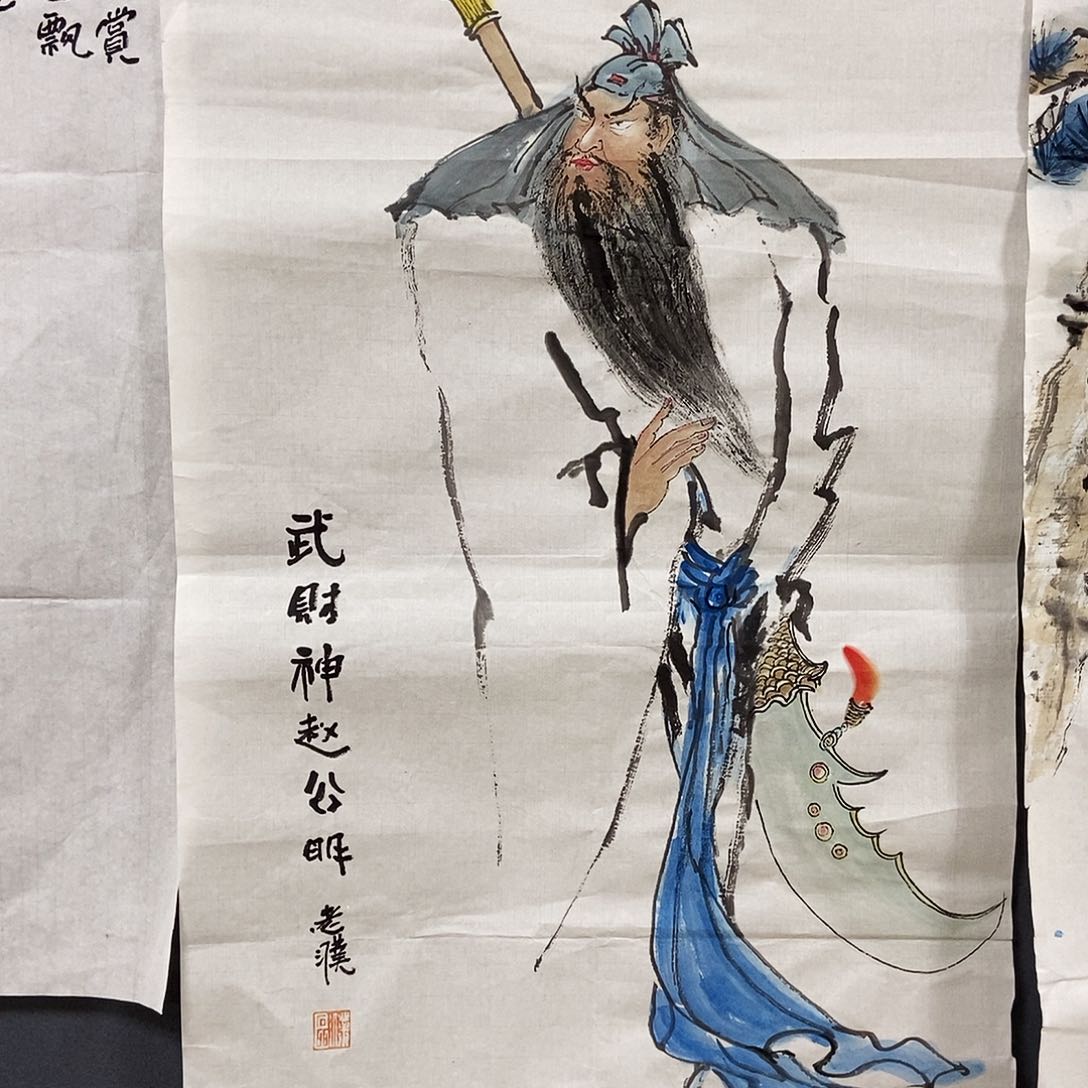 飘赏
武财神赵公明
老濮